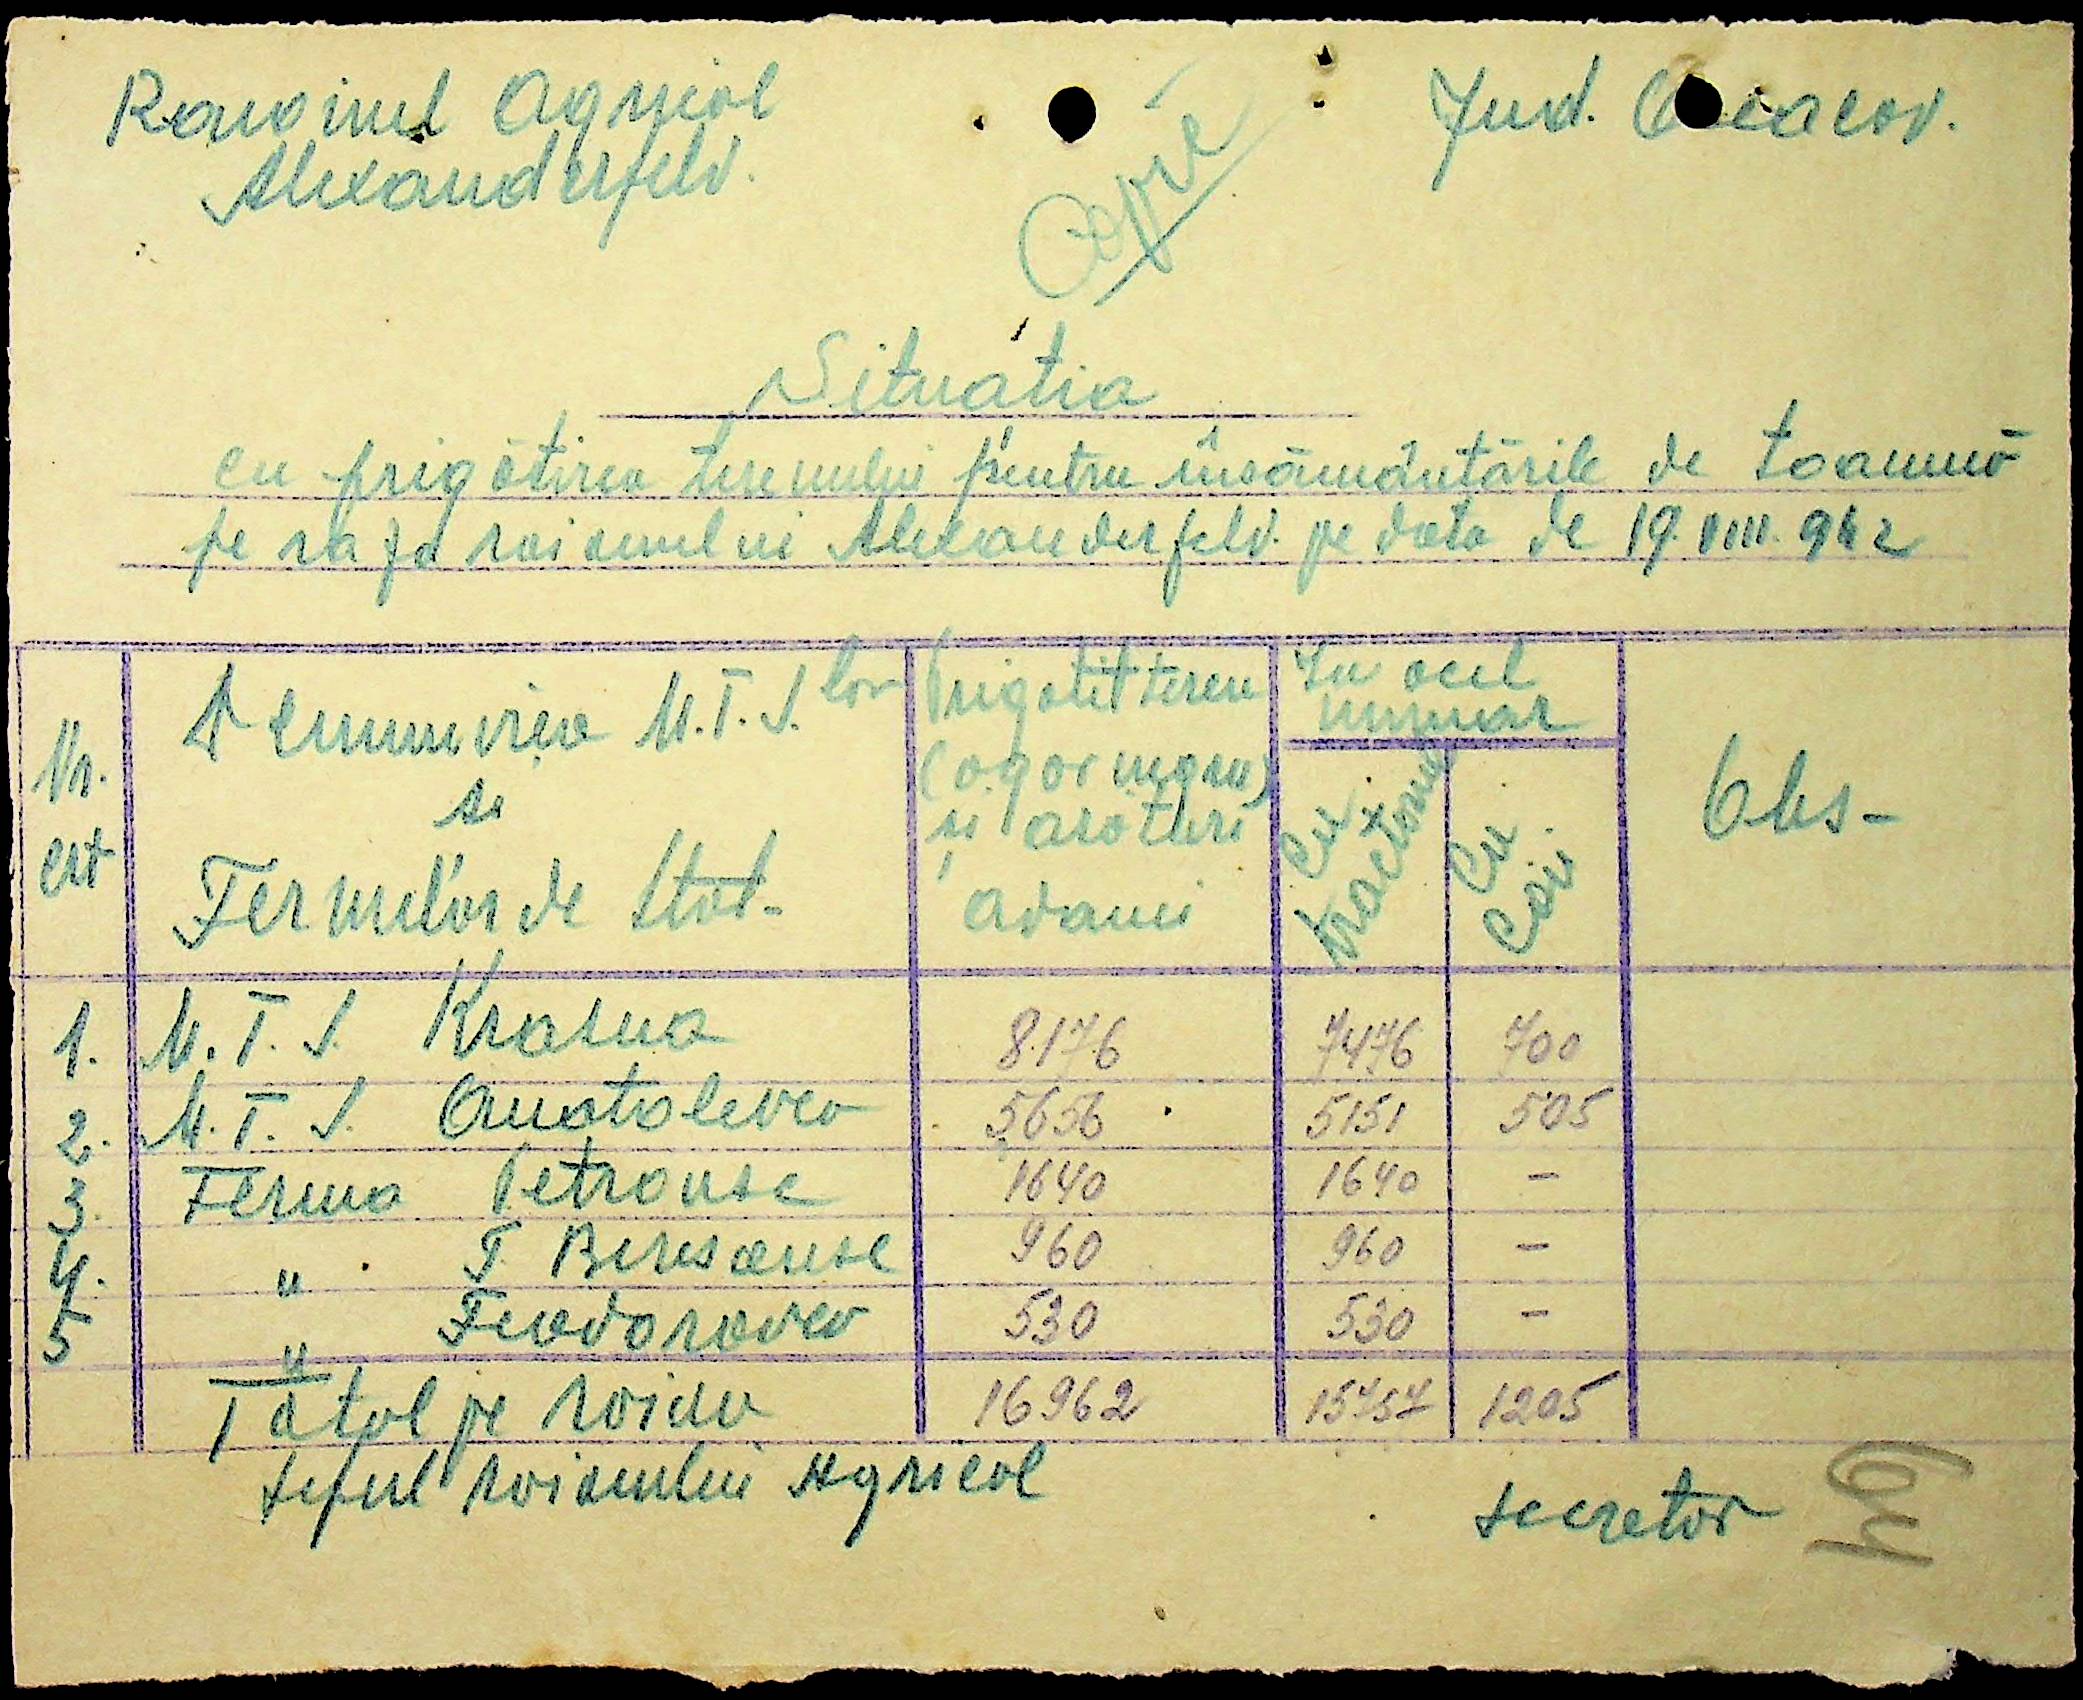 Raionul Agricol
Alexanderfeld.
Copie
Jud. Oceacov.
Situatia
cu prigătirea terenului pentru însămânțările de toamnă
pe raza raionului Alexanderfeld. pe data de 19.VIII.942
Nr. crt
Denumirea M.T.S. lor
si
Fermelor de Stat-
Prigatit terene
(ogor negru)
și arături
adanci
In acel
numar
Cu tractorul
Cu Cai
Obs-
1. M.T.S. Krasna 8176 7476 700
2. M.T.S. Anatolevca 5656 5151 505
3. Ferma Petrovsc 1640 1640 -
4. " T. Beresansc 960 960 -
5 " Feodorovca 530 530 -
Total pe raion 16962 15757 1205
seful raionului Agricol
secretar
64